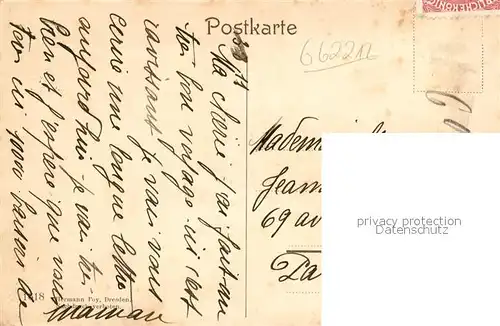 Postkarte
66221a
Ma chérie j'ai fait un
très bon voyage ici c'est
ravissant je vais vous
écrire une longue lettre
aujourd'hui je vais très
bien et j'espère que vous
1000 baisers de
maman
Mademoi
Jean
69 av
Pa
privacy protection
Datenschutz
Hermann Poy, Dresden.
verboten.